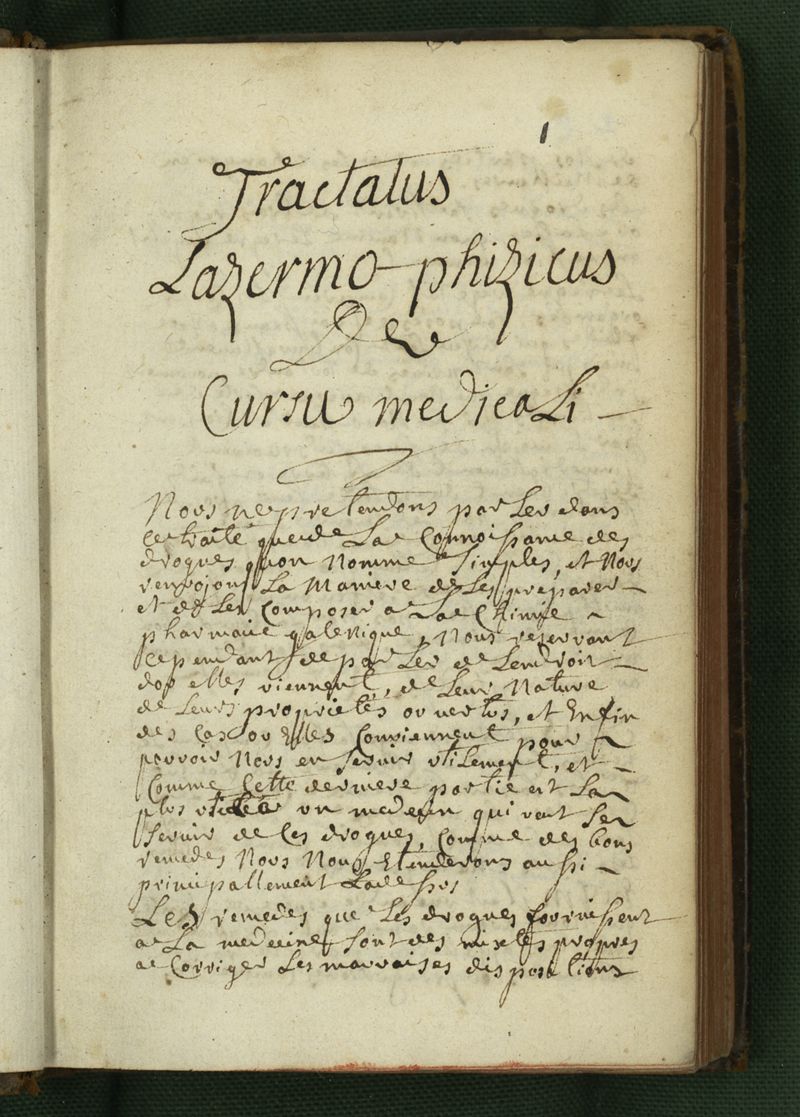 1
Tractatus
Lazermo-phizicus
De
Cursu medicali
Nous ne pretendons parler dans
ce traité que de La Connoissance des
drogues quon Nomme Simples, et Nous
renvojons La Maniere de Les preparer
et de Les Composer a La Chimie
pharmacie galenique, Nous reservant
cependant de parler de Lendroit
dou elles viennent, de Leur Nature
de Leurs proprietés ou vertus, et Enfin
des Cas ou Elles Conviennent pour
pouvoir Nous en servir utilement, et
Comme Cette derniere partie est La
plus utile a un medecin qui veut se
servir de Ces drogues, Comme des bons
remedes Nous Nous Etenderons aussi
principallement La dessus
Les remedes que Les drogues fournissent
a La medecine, sont des mixtes propres
a Corriger Les mauvaises dispositions